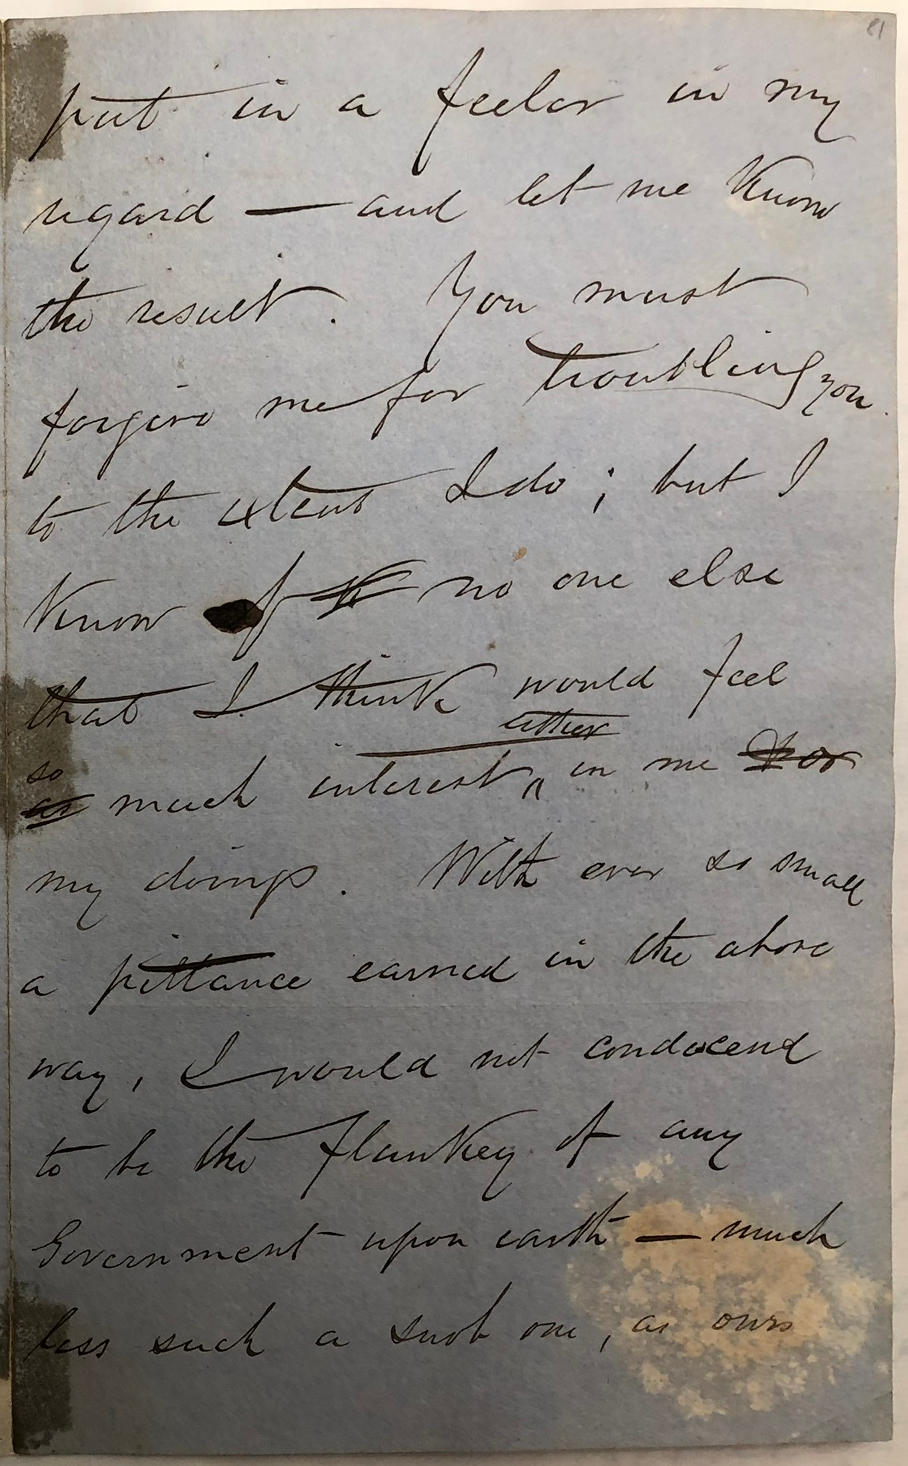 81
put in a feeler in my
regard — and let me know
the result. You must
forgive me for troubling you
to the extent I do; but I
know of no one else
that I think would feel
so much interest either in me or
my doings. With ever so small
a pittance earned in the above
way, I would not condecend
to be the flunkey of any
Government upon earth — much
less such a snob one, as ours